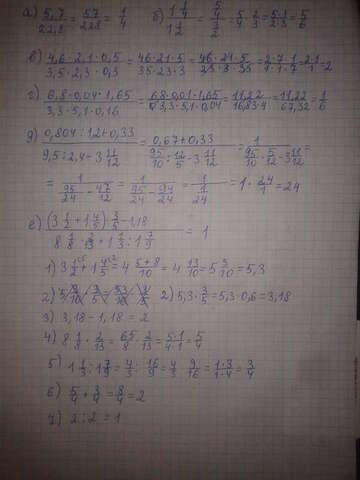 а) 5,7/22,8 = 57/228 = 1/4 б) 1 1/4 / 1 1/2 = 5/4 / 3/2 = 5/4 · 2/3 = 5·1/2·3 = 5/6
в) 4,6·2,1·0,5 / 3,5·2,3·0,3 = 46·21·5 / 35·23·3 = 46·21·5 / 23·3·35 = 2·7·1 / 1·1·7 = 2·1/1 = 2
г) 6,8·0,04·1,65 / 3,3·5,1·0,16 = 68·0,01·1,65 / 3,3·5,1·0,04 = 11,22 / 16,83·4 = 11,22/67,32 = 1/6
д) 0,804:1,2+0,33 / 9,5:2,4-3 11/12 = 0,67+0,33 / 95/10 : 12/5 - 3 11/12 = 1 / 95/10 · 5/12 - 3 11/12 =
= 1 / 95/24 - 47/12 = 1 / 95/24 - 94/24 = 1 / 1/24 = 1 · 24/1 = 24
е) (3 1/2 + 1 4/5) · 3/5 - 1,18 / 8 1/8 · 2/13 + 1 1/3 : 1 7/9 = 1
1) 3 1/2 + 1 4/5 = 4 5+8/10 = 4 13/10 = 5 3/10 = 5,3
2) 5,3 · 3/5 = 5,3·0,6 = 3,18
3) 3,18-1,18 = 2
4) 8 1/8 · 2/13 = 65/8 · 2/13 = 5·1/4·1 = 5/4
5) 1 1/3 : 1 7/9 = 4/3 : 16/9 = 4/3 · 9/16 = 1·3/1·4 = 3/4
6) 5/4 + 3/4 = 8/4 = 2
7) 2:2 = 1